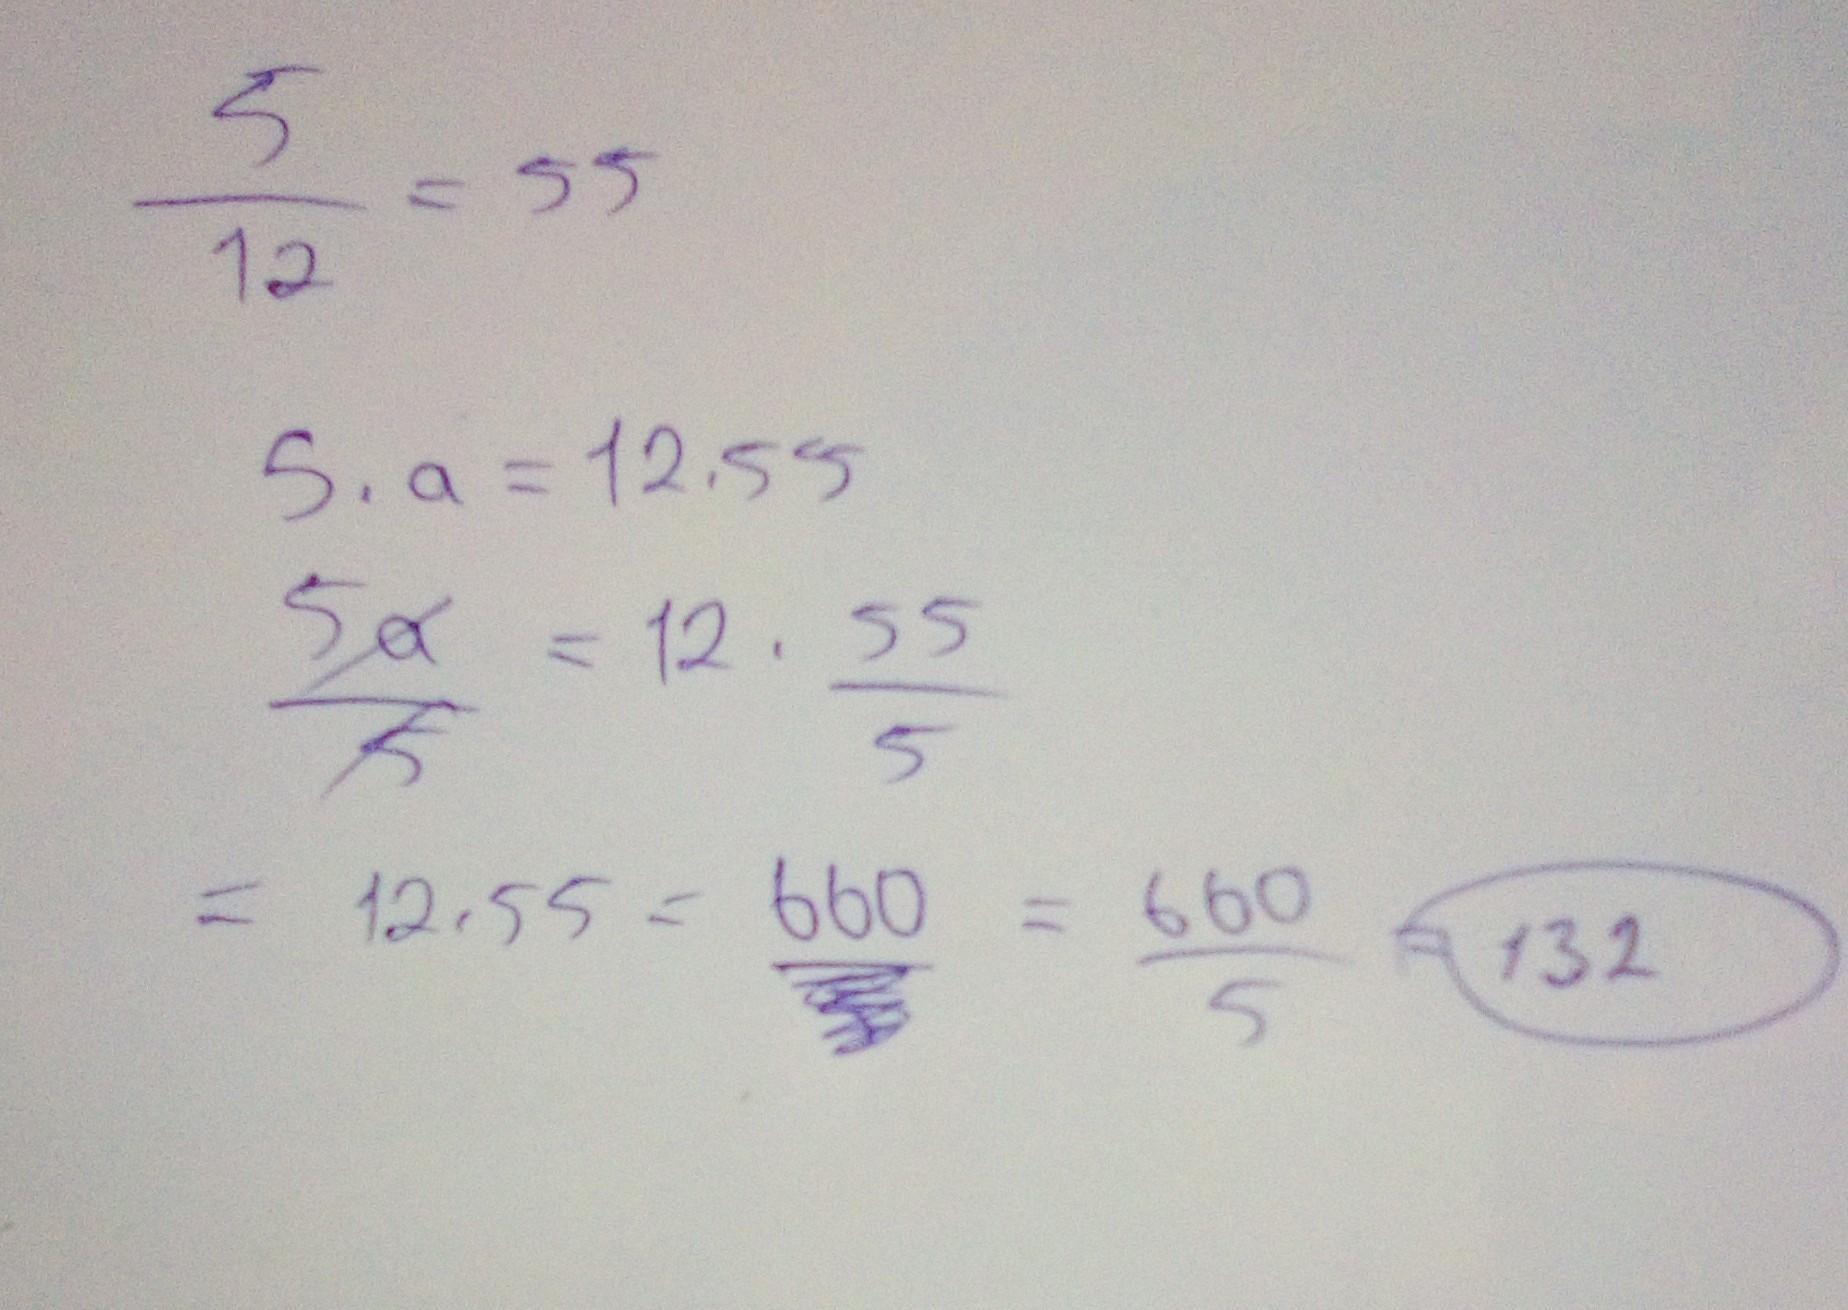 5/12 = 55
5. a = 12.55
5a/5 = 12 . 55/5
= 12.55 = 660 = 660/5 = 132